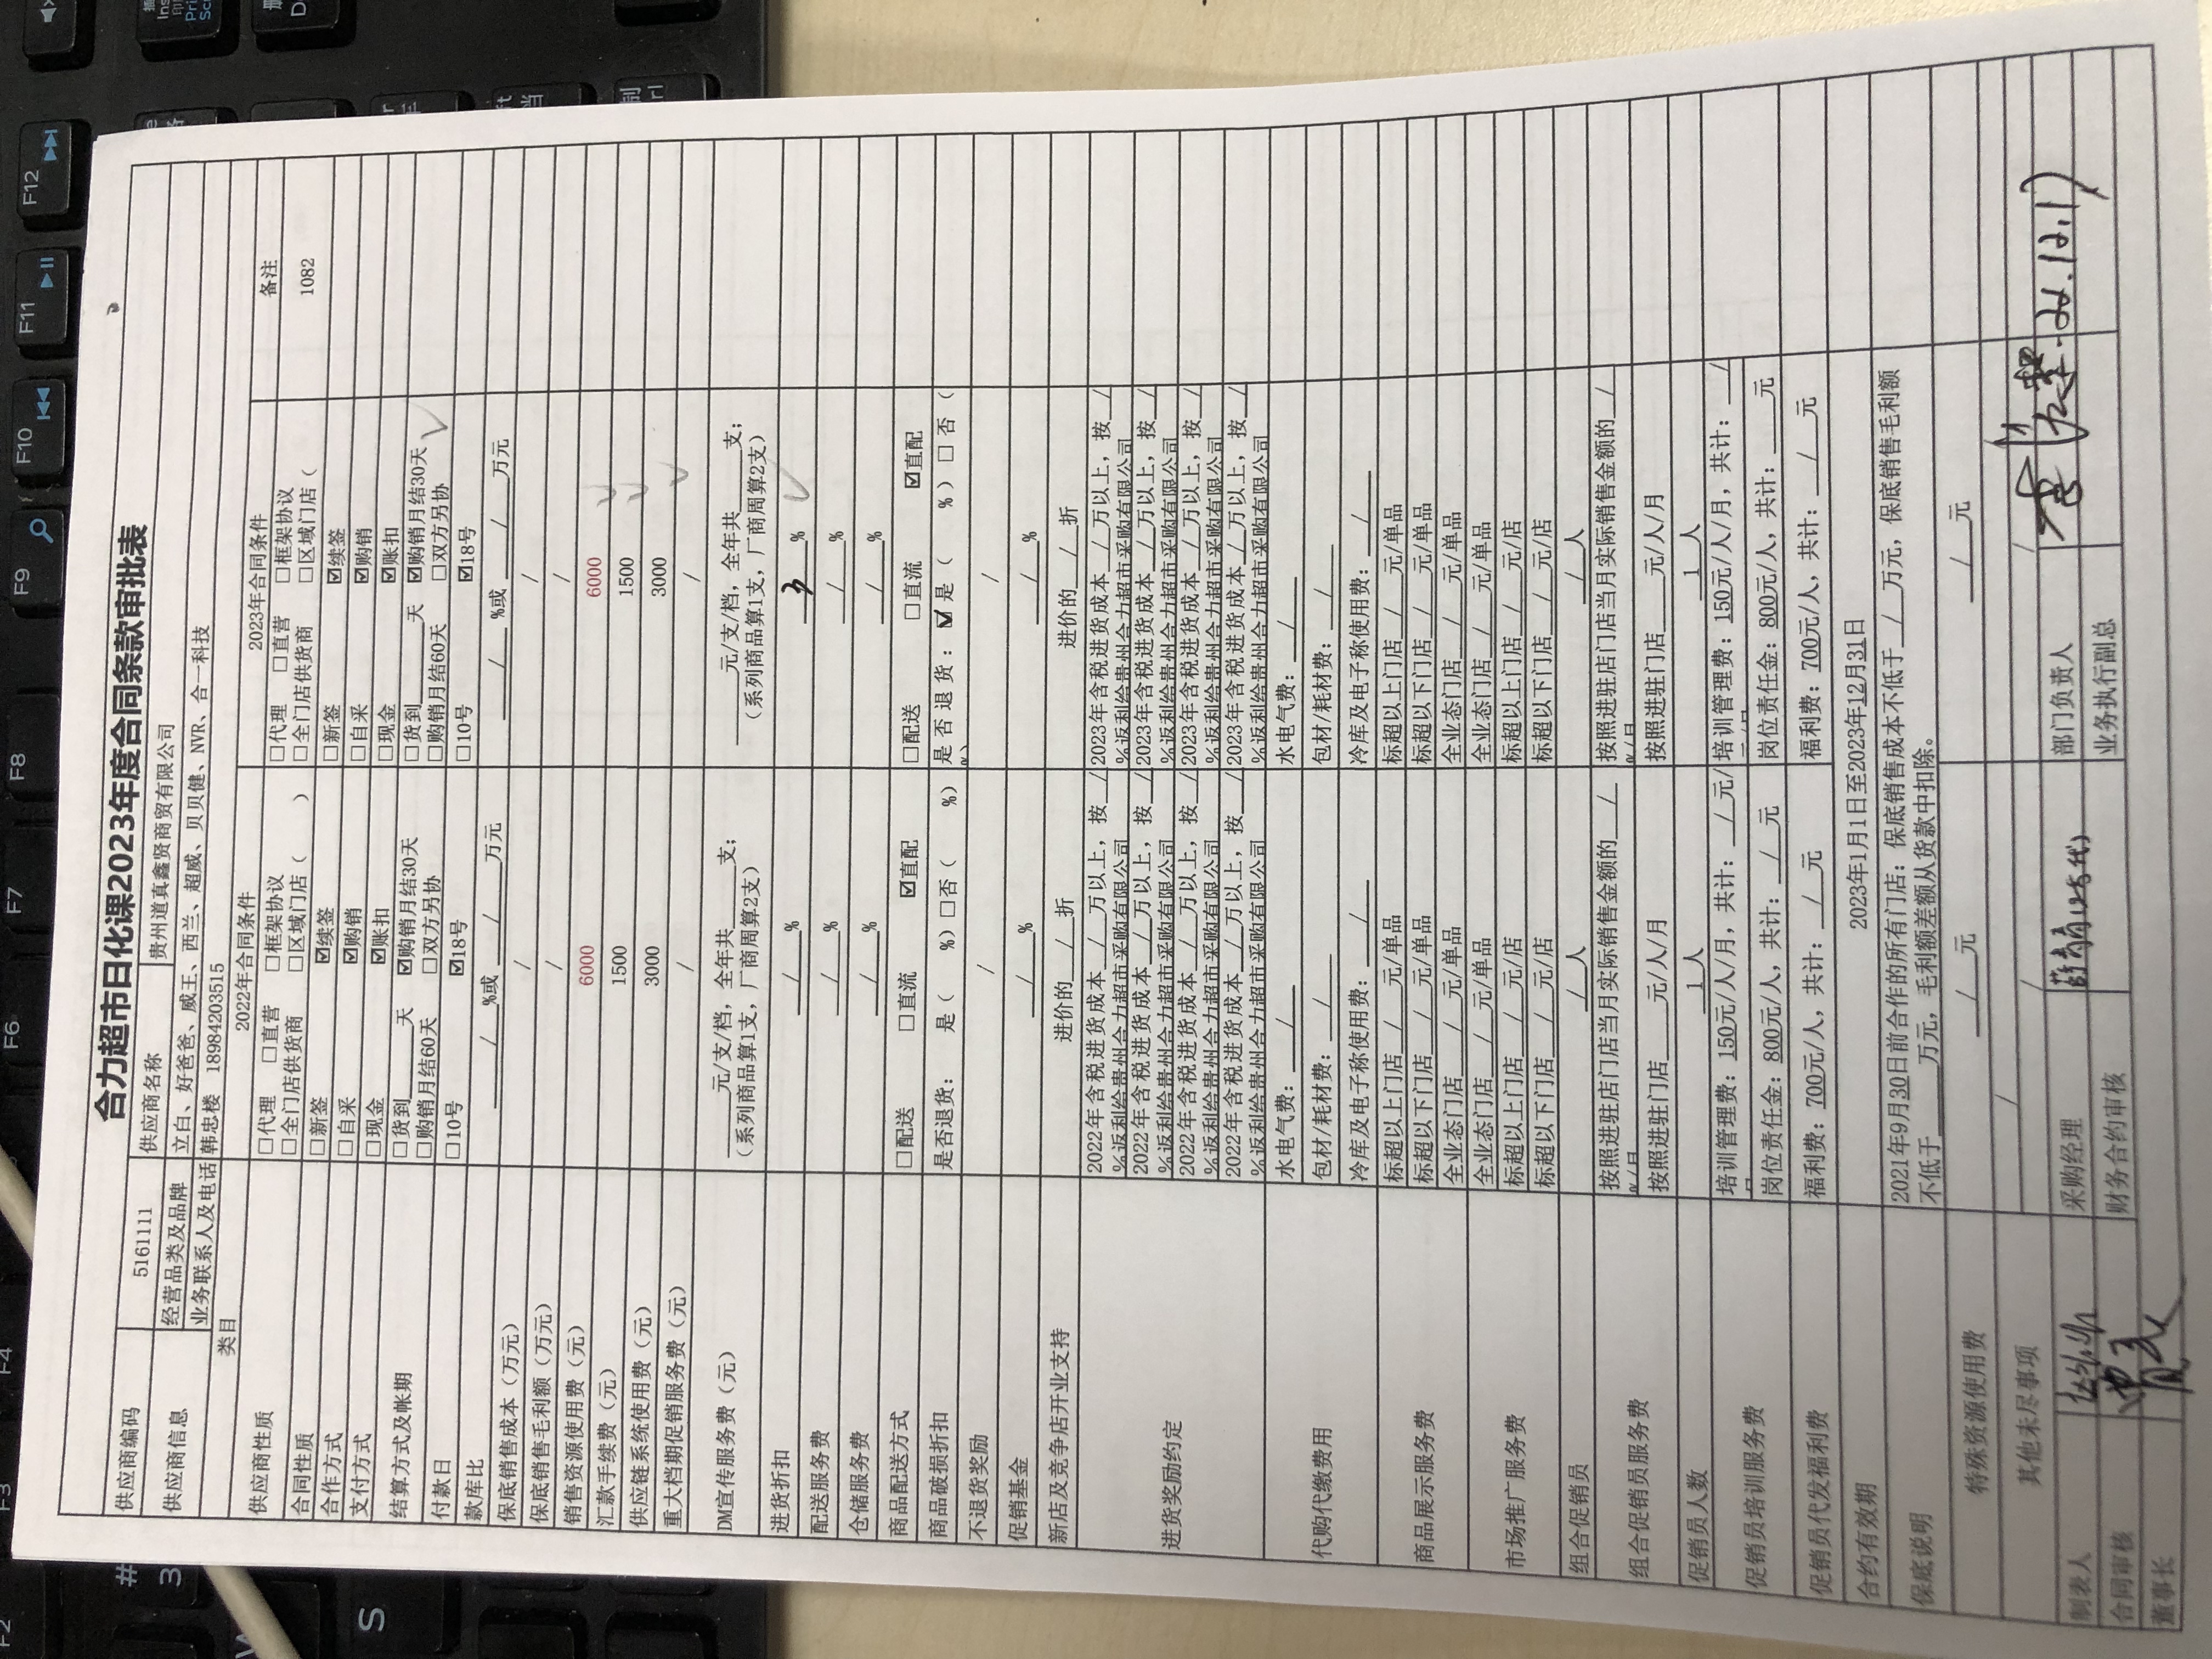 合力超市日化课2023年度合同条款审批表
供应商编码 5161111 供应商名称 贵州道真鑫贤商贸有限公司
供应商信息 经营品类及品牌 立白、好爸爸、威王、西兰、超威、贝贝健、NVR、合一科技
业务联系人及电话 韩忠楼 18984203515
类目 2022年合同条件 2023年合同条件 备注
供应商性质 □代理 □直营 □框架协议 □代理 □直营 □框架协议
□全门店供货商 □区域门店( ) □全门店供货商 □区域门店( 1082
合同性质 □新签 ☑续签 □新签 ☑续签
合作方式 □自采 ☑购销 □自采 ☑购销
支付方式 □现金 ☑账扣 □现金 ☑账扣
结算方式及帐期 □货到___天 ☑购销月结30天 □货到___天 ☑购销月结30天
□购销月结60天 □双方另协 □购销月结60天 □双方另协
付款日 □10号 ☑18号 □10号 ☑18号
款库比 / %或 / 万元 / %或 / 万元
保底销售成本(万元) / /
保底销售毛利额(万元) / /
销售资源使用费(元) 6000 6000
汇款手续费(元) 1500 1500
供应链系统使用费(元) 3000 3000
重大档期促销服务费(元) / /
DM宣传服务费(元) ___元/支/档,全年共___支; ___元/支/档,全年共___支;
(系列商品算1支,厂商周算2支) (系列商品算1支,厂商周算2支)
进货折扣 / % 3 %
配送服务费 / % / %
仓储服务费 / % / %
商品配送方式 □配送 □直流 ☑直配 □配送 □直流 ☑直配
商品破损折扣 是否退货: 是( %)□否( %) 是否退货:☑是( %)□否(
%
不退货奖励 / /
促销基金 / % / %
新店及竞争店开业支持 进价的 / 折 进价的 / 折
进货奖励约定 2022年含税进货成本 / 万以上,按 / 2023年含税进货成本 / 万以上,按 /
%返利给贵州合力超市采购有限公司 %返利给贵州合力超市采购有限公司
2022年含税进货成本 / 万以上,按 / 2023年含税进货成本 / 万以上,按 /
%返利给贵州合力超市采购有限公司 %返利给贵州合力超市采购有限公司
2022年含税进货成本 / 万以上,按 / 2023年含税进货成本 / 万以上,按 /
%返利给贵州合力超市采购有限公司 %返利给贵州合力超市采购有限公司
2022年含税进货成本 / 万以上,按 / 2023年含税进货成本 / 万以上,按 /
%返利给贵州合力超市采购有限公司 %返利给贵州合力超市采购有限公司
代购代缴费用 水电气费: / 水电气费: /
包材/耗材费: / 包材/耗材费: /
冷库及电子称使用费: / 冷库及电子称使用费: /
商品展示服务费 标超以上门店 / 元/单品 标超以上门店 / 元/单品
标超以下门店 / 元/单品 标超以下门店 / 元/单品
全业态门店 / 元/单品 全业态门店 / 元/单品
市场推广服务费 全业态门店 / 元/单品 全业态门店 / 元/单品
标超以上门店 / 元/店 标超以上门店 / 元/店
标超以下门店 / 元/店 标超以下门店 / 元/店
组合促销员 / 人 / 人
组合促销员服务费 按照进驻店门店当月实际销售金额的 / 按照进驻店门店当月实际销售金额的 /
%/月 %/月
按照进驻门店___元/人/月 按照进驻门店___元/人/月
促销员人数 1 人 1 人
促销员培训服务费 培训管理费:150元/人/月,共计: / 元/ 培训管理费:150元/人/月,共计: /
岗位责任金:800元/人,共计: / 元 岗位责任金:800元/人,共计:___元
促销员代发福利费 福利费:700元/人,共计: / 元 福利费:700元/人,共计: / 元
合约有效期 2023年1月1日至2023年12月31日
保底说明 2021年9月30日前合作的所有门店:保底销售成本不低于 / 万元,保底销售毛利额
不低于___万元,毛利额差额从货款中扣除。
特殊资源使用费 / 元 / 元
其他未尽事项 / / /
制表人 采购经理 部门负责人 22.12.17
合同审核 财务合约审核 业务执行副总
董事长
# 3 S
F2 F3 F4 F6 F7 F8 F9 F10 F11 F12